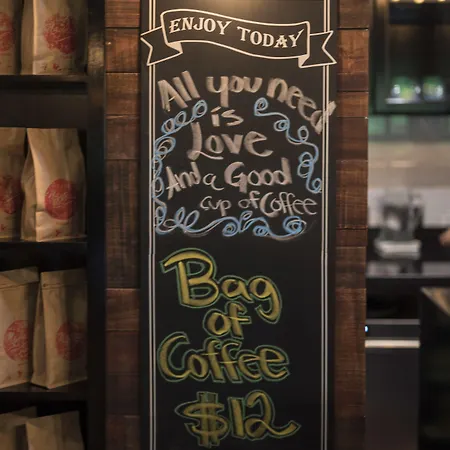 ENJOY TODAY
All you need
is
Love
And a Good
cup of Coffee
Bag
of
Coffee
$12